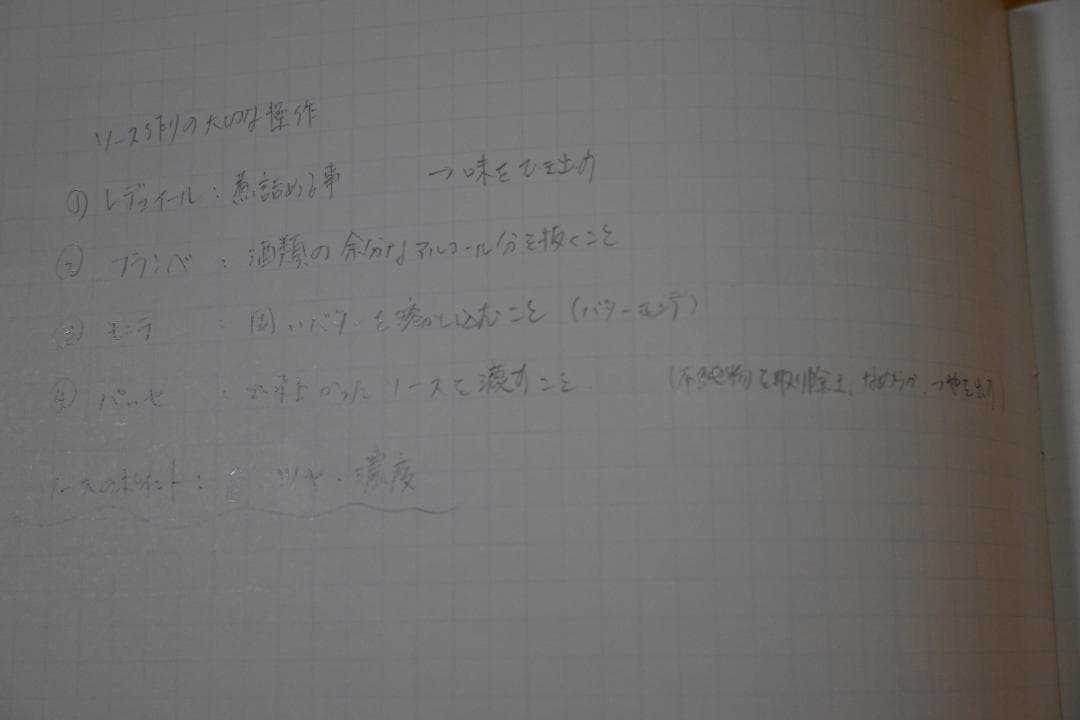 ソース作りの大切な操作
① レデュイール : 煮詰める事 → 味をひき出す
② フランベ : 酒類の余分なアルコール分を抜くこと
③ モンテ : 固いバターを溶かし込むこと (バターモンテ)
④ パッセ : 出来上がった ソースを漉すこと (不純物を取り除き、なめらか、つやを出す)
ソースのポイント : ツヤ・濃度